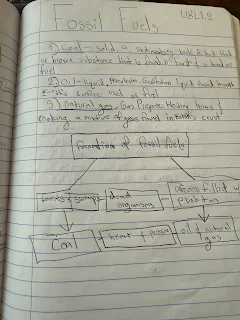 Fossil - Fuels
U8L1.2
1) Coal - solid a sedimentary rock black
or brown substance that is found in Earth & is used as
fuel
2) Oil - liquid, Petroleum, Gasoline liquid found beneath
Earth's surface used as fuel
3) Natural gas - Gas Propane Heating homes &
cooking a mixture of gases found in Earth's crust
Formation of Fossil fuels
swamps
dead
organisms
oceans filled w
plankton
Coal
heat & pressure
oil & natural
gas